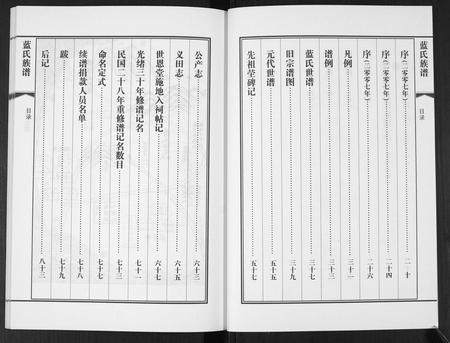 蓝氏族谱
目录
序(二零零七年)……二十
序(二零零七年)……二十四
序(二零零七年)……二十六
凡例……三十一
谱例……三十二
蓝氏世谱……三十七
旧宗谱图……三十九
元代世谱……五十五
先祖茔碑记……五十七
公产志……六十三
义田志……六十五
世恩堂施地入祠帖记……六十七
光绪三十年修谱记名……七十一
民国二十八年重修谱记名数目……七十三
命名定式……七十七
续谱捐款人员名单……七十八
跋……七十九
后记……八十三
蓝氏族谱
目录